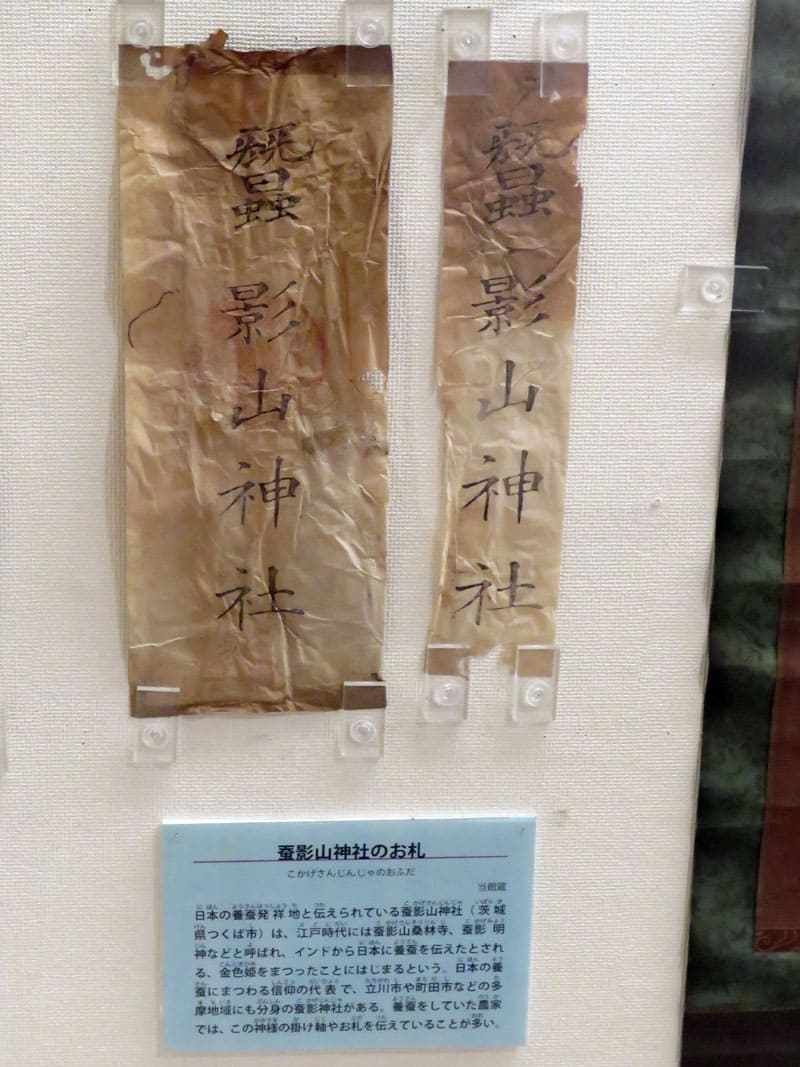 蠶影山神社
蠶影山神社
蚕影山神社のお札
こかげさんじんじゃのおふだ
当館蔵
日本の養蚕発祥地と伝えられている蚕影山神社（茨城
県つくば市）は、江戸時代には蚕影山桑林寺、蚕影明
神などと呼ばれ、インドから日本に養蚕を伝えたとされ
る、金色姫をまつったことにはじまるという。日本の養
蚕にまつわる信仰の代表で、立川市や町田市などの多
摩地域にも分身の蚕影神社がある。養蚕をしていた農家
では、この神様の掛け軸やお札を伝えていることが多い。